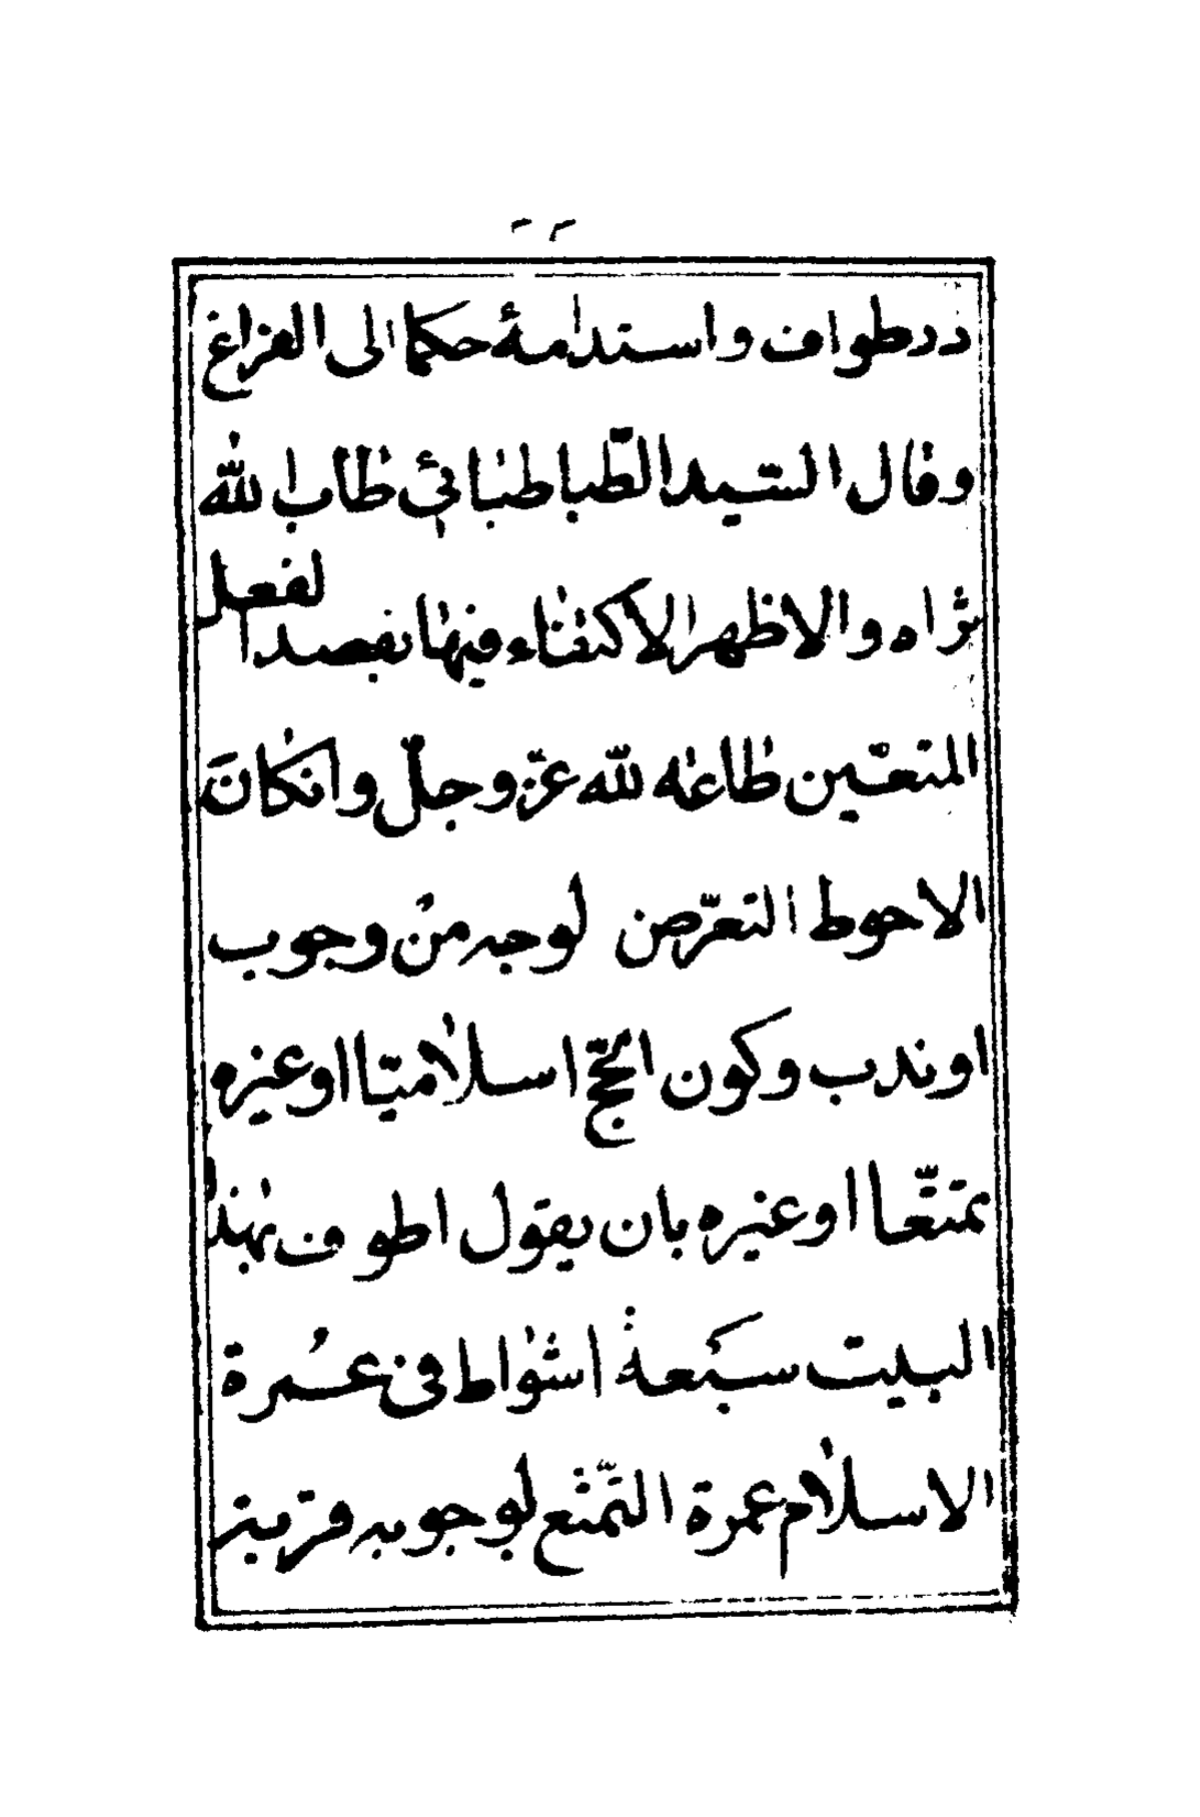 در طواف و استدامهٔ حكما الى الفراغ
و قال السّيد الطّباطبائي طاب الله
ثراه و الاظهر الاكتفاء فيها بقصد الفعل
المتعّين طاعه لله عزّ و جلّ و انكانَ
الاحوط التعرّض لوجه من وجوب
او ندب و كون الحجّ اسلاميّا او غيره
تمتّعا او غيره بان يقول اطوف بهذا
البيت سَبْعة اشواط فى عُمرة
الاسلام عمرة التّمتع لوجوبه قربة